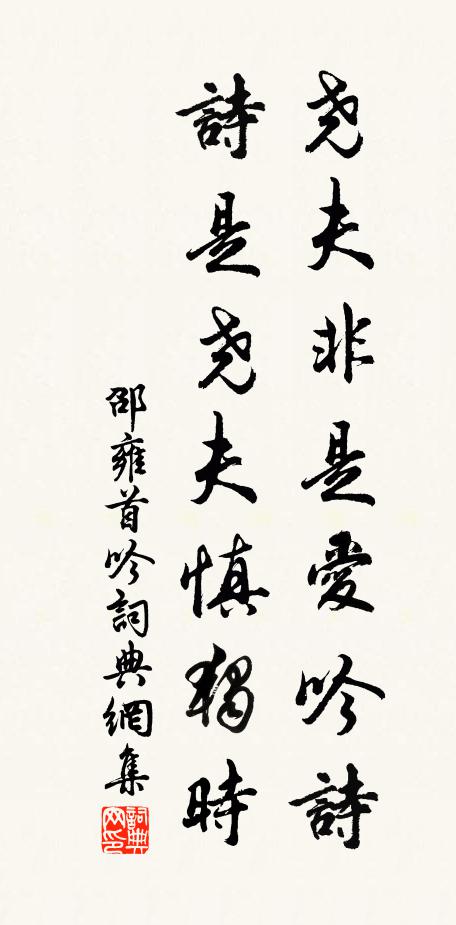 尧夫非是愛吟詩
詩是尧夫慎獨時
邵雍首吟詞典網集
詞典网印